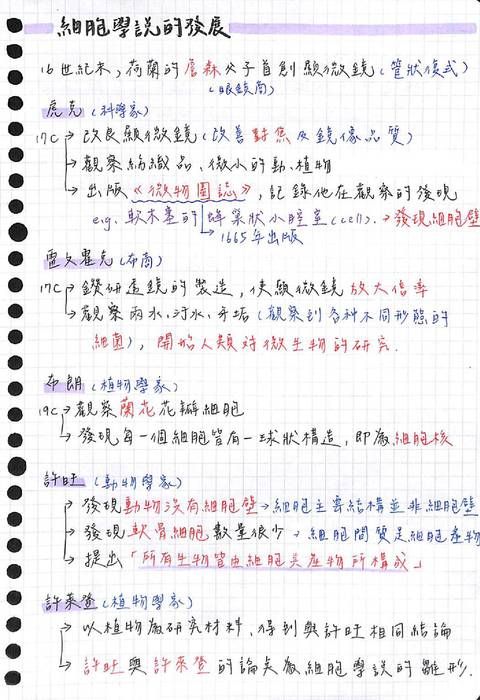 細胞學說的發展
16世紀末，荷蘭的詹森父子首創顯微鏡(管狀複式)
(眼鏡商)
虎克(科學家)
17C → 改良顯微鏡(改善對焦及鏡像品質)
→ 觀察紡織品、微小的動、植物
→ 出版《微物圖誌》，記錄他在觀察的發現
e.g. 軟木塞的蜂巢狀小腔室(cell). → 發現細胞壁
→ 1665年出版
雷文霍克(布商)
17C → 鑽研透鏡的製造，使顯微鏡放大倍率
→ 觀察雨水、汙水、牙垢(觀察到各種不同形態的
細菌)，開始人類對微生物的研究.
布朗(植物學家)
19C → 觀察蘭花花瓣細胞
→ 發現每一個細胞皆有一球狀構造，即為細胞核
許旺(動物學家)
→ 發現動物沒有細胞壁→細胞主要結構並非細胞壁
→ 發現軟骨細胞數量很少，細胞間質是細胞產物
→ 提出「所有生物皆由細胞與產物所構成」
許萊登(植物學家)
→ 以植物為研究材料，得到與許旺相同結論
→ 許旺與許萊登的論點為細胞學說的雛形.